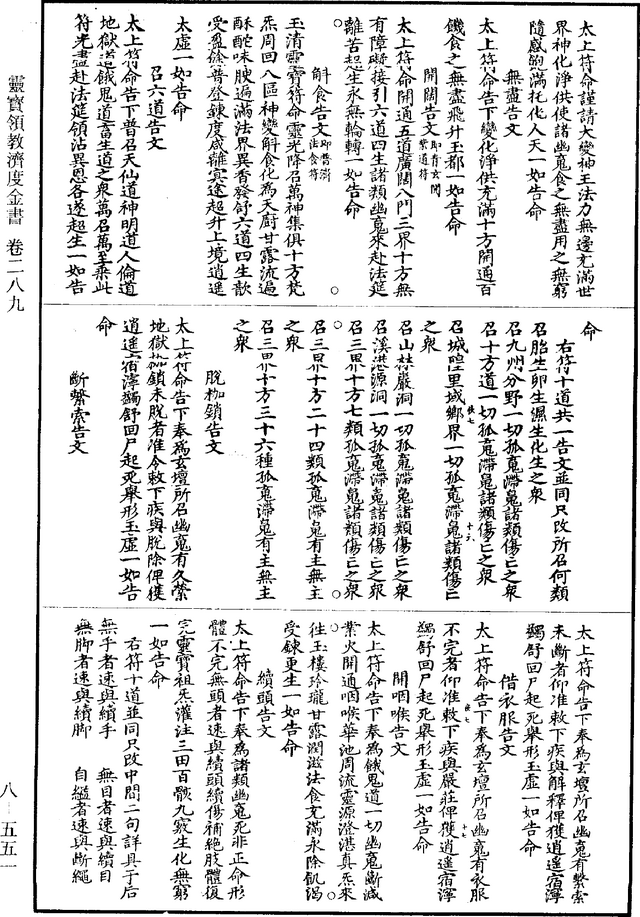 太上符命謹請大變神王法力無邊充滿世
界神化淨供使諸幽䰟食之無盡用之無窮
隨感飽滿托化人天一如告命
無盡告文
太上符命告下變化淨供充滿十方開通百
饑食之無盡飛升玉都一如告命
開闊告文
太上符命開通五道廣闊八門三界十方無
有障礙接引六道四生諸類幽䰟來赴法筵
離苦超生永無輪轉一如告命
斛食告文
玉清靈寶符命靈光降召萬神集俱十方梵
炁周回八區神變斛食化為天廚甘露流遍
酥酡味腴遍滿法界異香發舒六道四生歆
受盈餘普登鍊度咸離冥途超升上境逍遥
太虛一如告命
召六道告文
太上符命告下普召天仙道神明道人倫道
地獄道餓鬼道畜生道之衆萬召萬至乘此
符光盡赴法筵領沾異恩各遂超生一如告
命
右符十道共一告文並同只改所召何類
召胎生卵生濕生化生之衆
召九州分野一切孤䰟滯鬼諸類傷亡之衆
召十方道一切孤䰟滯鬼諸類傷亡之衆
召城隍里域鄉界一切孤䰟滯鬼諸類傷亡
之衆
召山林巖洞一切孤䰟滯鬼諸類傷亡之衆
召溪港源洞一切孤䰟滯鬼諸類傷亡之衆
召三界十方七類孤䰟滯鬼諸類傷亡之衆
召三界十方二十四類孤䰟滯鬼有主無主
之衆
召三界十方三十六種孤䰟滯鬼有主無主
之衆
脫枷鎖告文
太上符命告下奉為玄壇所召幽䰟有久縈
地獄枷鎖未脫者准令敕下疾與脫除俾獲
逍遥宿滓蠲舒回尸起死舉形玉虛一如告
命
斷繫索告文
太上符命告下奉為玄壇所召幽䰟有繫索
未斷者仰准敕下疾與解釋俾獲逍遥宿滓
蠲舒回尸起死舉形玉虛一如告命
借衣服告文
太上符命告下奉為玄壇所召幽䰟有衣服
不完者仰准敕下疾與嚴莊俾獲逍遥宿滓
蠲舒回尸起死舉形玉虛一如告命
開咽喉告文
太上符命告下奉為餓鬼道一切幽䰟斷滅
業火開通咽喉華池周流靈源澄湛真炁來
往玉樓玲瓏甘露潤滋法食充滿永除飢渴
受鍊更生一如告命
續頭告文
太上符命告下奉為諸類幽䰟死非正命形
體不完無頭者速與續頭續傷補絕肢體復
完靈寶祖炁灌注三田百骸九竅生化無窮
一如告命
右符十道並同只改中間二句詳具于后
無手者速與續手　無目者速與續目
無脚者速與續脚　自縊者速與斷繩
靈寶領教濟度金書　卷二八九
八—五五一